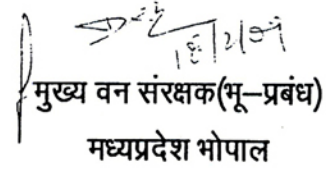 मुख्य वन संरक्षक(भू–प्रबंध)
मध्यप्रदेश भोपाल